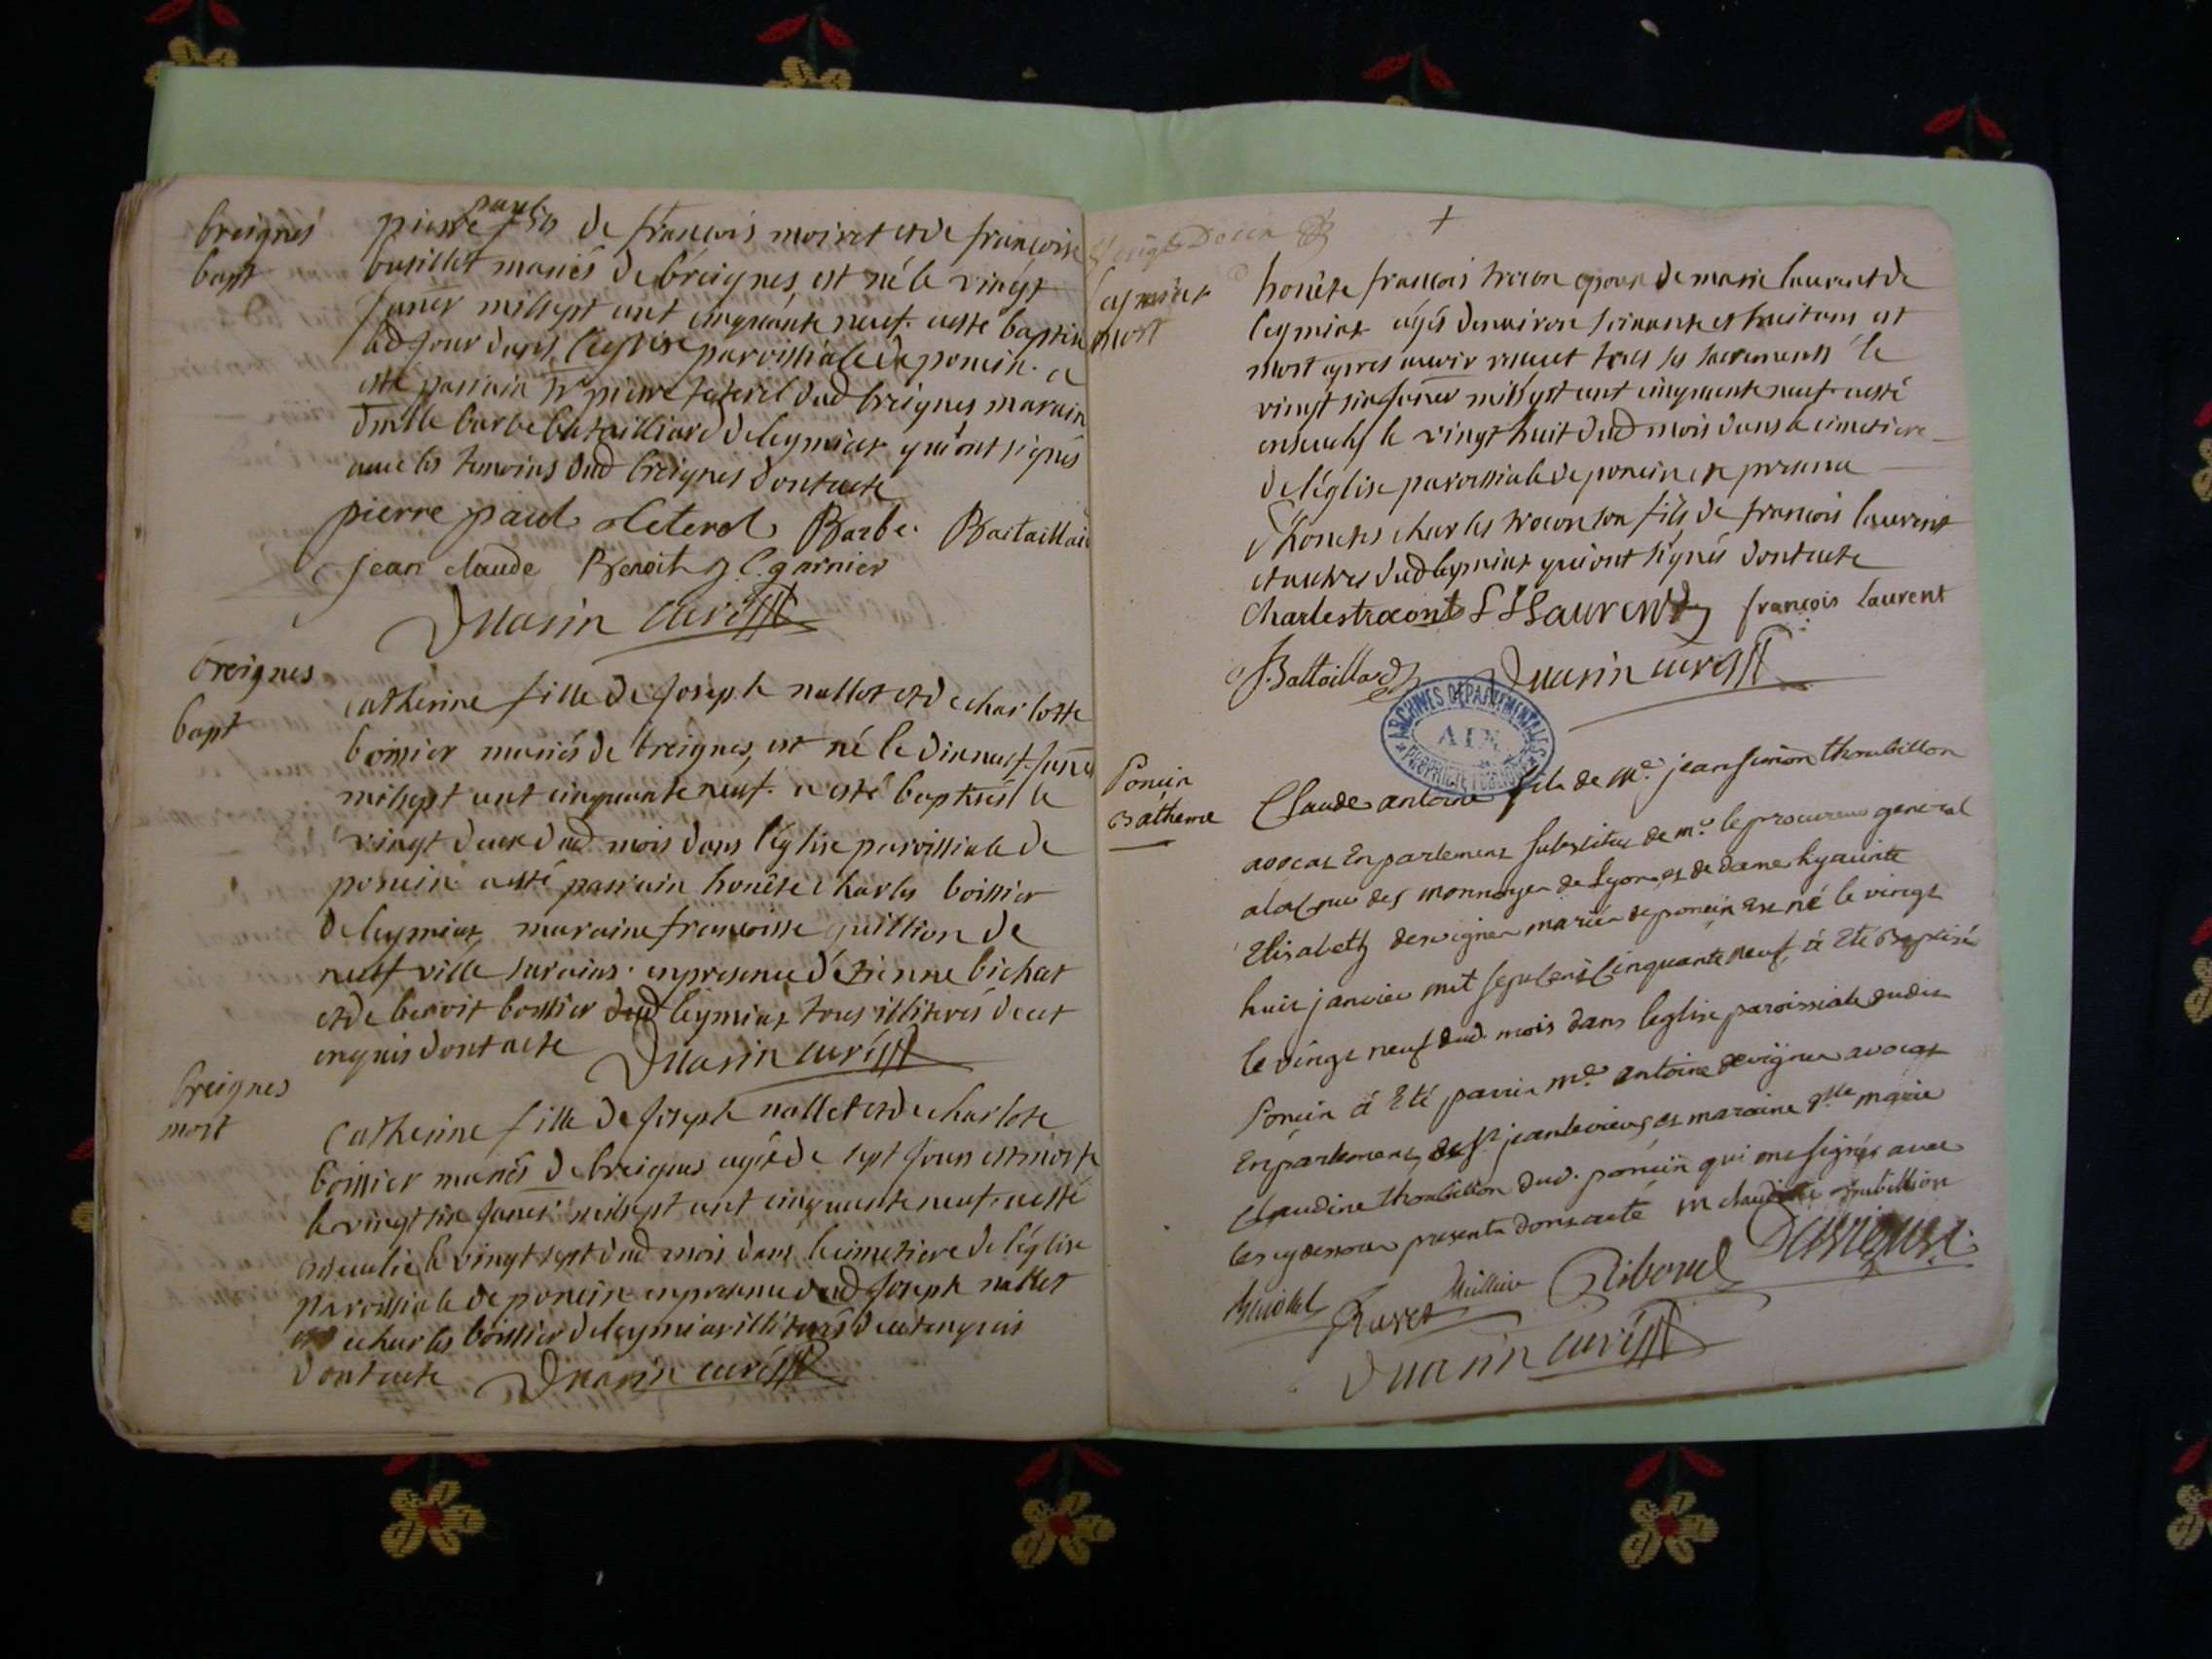 breignes
bapt
pierre paul fils de françois moiret et de françoise
busillet mariés de breignes est né le vingt
janer mil sept cent cinquante neuf. a esté baptisé
led jour dans l'eglise parroissiale de poncin. a
esté parrain Sr pierre dud breignes maraine
dmlle barbe bataillard de leymiat qui ont signés
avec les temoins dud breignes dont acte
pierre paul Barbe Bataillard
jean claude Benoit J. C. garnier
Duarin curé
breignes
bapt
catherine fille de Joseph nallet et de charlotte
boissier mariés de breignes, est né le dix neuf janer
mil sept cent cinquante neuf. a esté baptisé le
vingt deux dud mois dans l'église parroissiale de
poncin a esté parrain honête charles boissier
de leymiat, maraine françoise guillion de
neufville sur ains. en presence d'étienne bichat
et de benoit boissier dud leymiat tous illiterés de cet
enquis dont acte Duarin curé
breignes
mort
catherine fille de Joseph nallet et de charlote
boissier mariés de breignes agée de sept jours est morte
le vingt six janer mil sept cent cinquante neuf. a esté
ensevelie le vingt sept dud mois dans le cimetiere de l'église
parroissiale de poncin en presence dud Joseph nallet
et de charles boissier de leymiat illiterés de cet enquis
dont acte Duarin curé
+
leymiat
mort
honête françois trocon epoux de marie laurent de
leymiat agés denviron soixante et huit ans est
mort apres avoir reçeut tous ses sacrements le
vingt six janer mil sept cent cinquante neuf. a esté
enseveli le vingt huit dud mois dans le cimetiere
de l'église parroissiale de poncin en presence
d'honetes charles trocon son fils de francois laurent
et autres dud leymiat qui ont signés dont acte
Charles trocont Laurent françois Laurent
J. Battaillard Duarin curé
ARCHIVES DÉPARTEMENTALES
AIN
PROPRIÉTÉ PUBLIQUE
Poncin
Batheme
Claude antoine fils de Me. jean simon thoubillon
avocat En parlement substitut de mr. le procureur general
a la cour des monnoyes de Lyon, et de dame hyacinte
Elisabeth desvignes mariés de poncin Est né le vingt
huit janvier mil sept cent cinquante neuf, à Eté Baptisé
le vingt neuf dud. mois dans leglise paroissiale dudit
Poncin à Eté parrin me. antoine desvignes avocat
En parlement, de St. jean le vieux, et maraine dlle marie
Claudine thoubillon dud. poncin qui ont signés avec
les cydessous presents dont acte m claudine thoubillion
Ravet Millier Riboud Desvignes.
Duarin curé